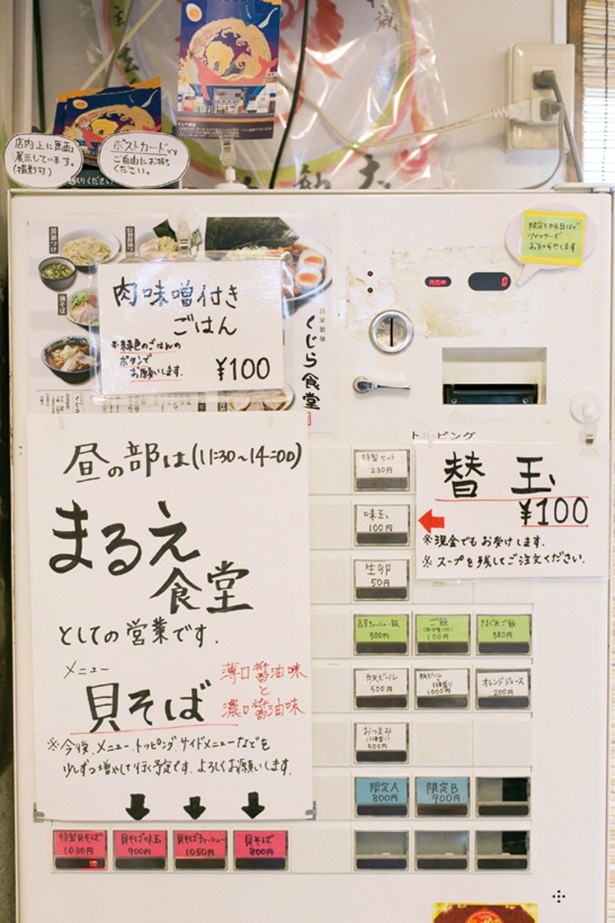 店内上に原画
展示しています。
(撮影可)
ポストカードです
ご自由にお持ち
ください。
肉味噌付き
ごはん
※緑色のごはんの
ボタンで
お願いします.
¥100
自家製麺
くじら食堂
0
トッピング
昼の部は(11:30~14:00)
まるえ
食堂
としての営業です.
メニュー
貝そば
薄口醤油味
と
濃口醤油味
※今後、メニュー、トッピング、サイドメニューなどを
少しずつ増やして行く予定です。よろしくお願いします.
替玉
¥100
※現金でもお受けします.
※スープを残してご注文ください.
特製セット
230円
味玉
100円
生卵
50円
300円
ご飯
100円
380円
瓶ビール
500円
1000円
オレンジジュース
200円
おつまみ
限定A
800円
限定B
900円
特製貝そば
1030円
貝そば味玉
900円
貝そばチャーシュー
1050円
貝そば
800円